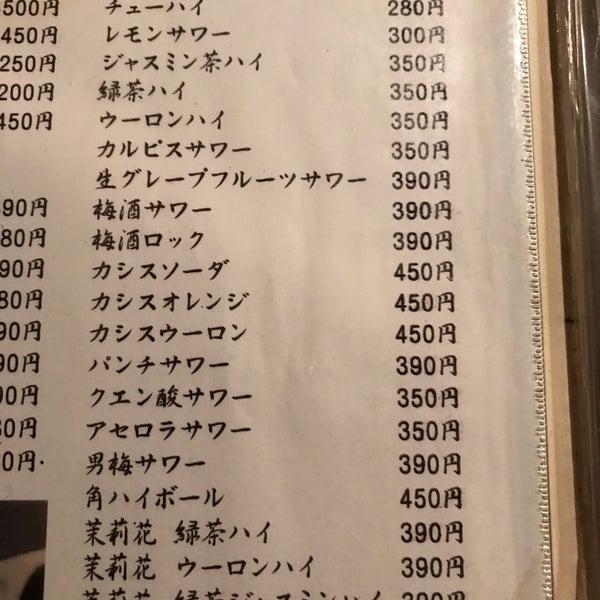 500円 チューハイ 280円
450円 レモンサワー 300円
250円 ジャスミン茶ハイ 350円
200円 緑茶ハイ 350円
450円 ウーロンハイ 350円
カルピスサワー 350円
生グレープフルーツサワー 390円
90円 梅酒サワー 390円
80円 梅酒ロック 390円
90円 カシスソーダ 450円
80円 カシスオレンジ 450円
90円 カシスウーロン 450円
90円 パンチサワー 390円
00円 クエン酸サワー 350円
80円 アセロラサワー 350円
0円 男梅サワー 390円
角ハイボール 450円
茉莉花 緑茶ハイ 390円
茉莉花 ウーロンハイ 390円
茉莉花 緑茶ジャスミンハイ 390円